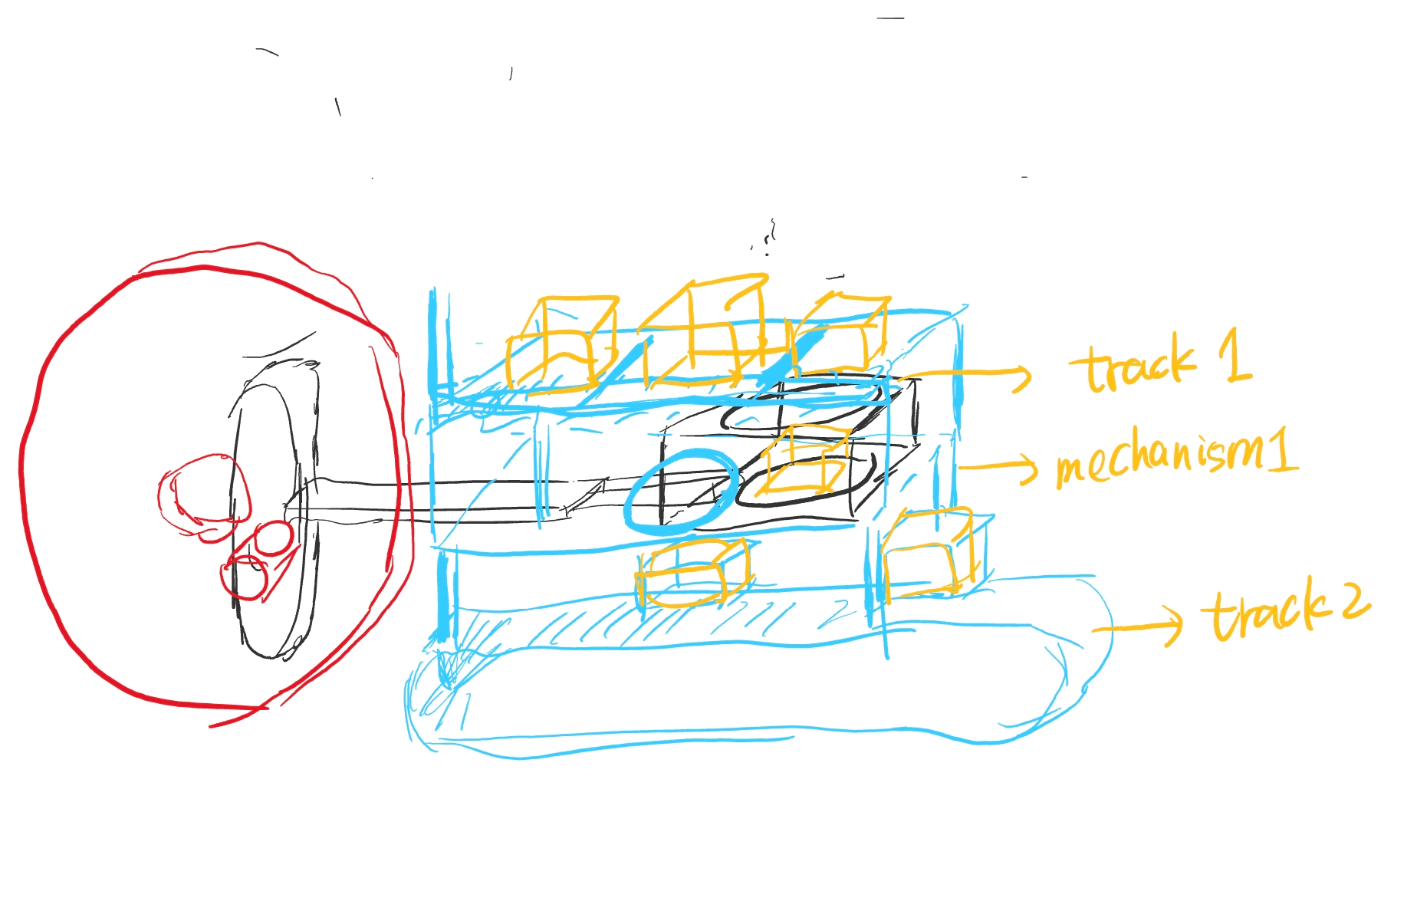 track 1
mechanism1
track2